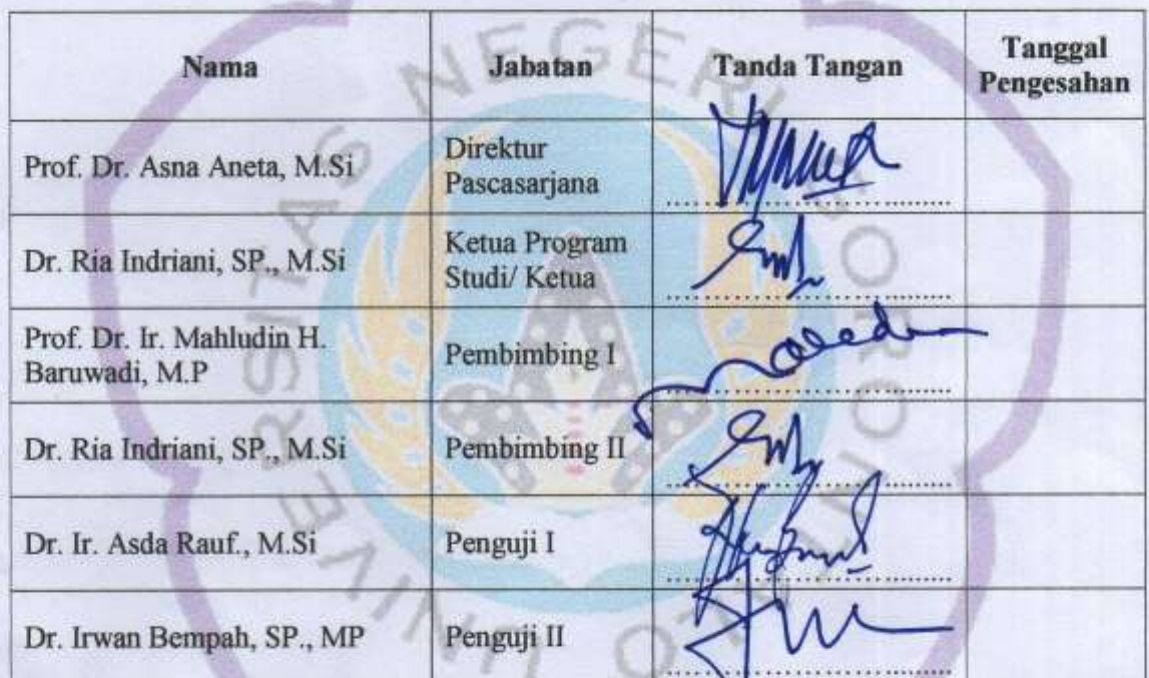 Nama Jabatan Tanda Tangan Tanggal
Pengesahan
Prof. Dr. Asna Aneta, M.Si Direktur
Pascasarjana
Dr. Ria Indriani, SP., M.Si Ketua Program
Studi/ Ketua
Prof. Dr. Ir. Mahludin H.
Baruwadi, M.P Pembimbing I
Dr. Ria Indriani, SP., M.Si Pembimbing II
Dr. Ir. Asda Rauf., M.Si Penguji I
Dr. Irwan Bempah, SP., MP Penguji II
UNIVERSITAS NEGERI GORONTALO